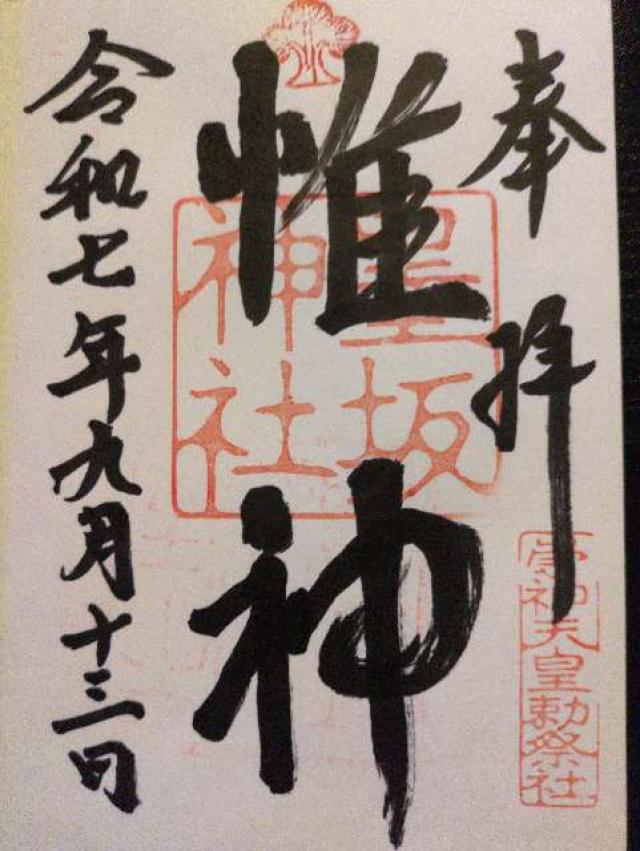 奉拝
崇神天皇勅祭社
惟神
墨坂
神社
令和七年九月十三日